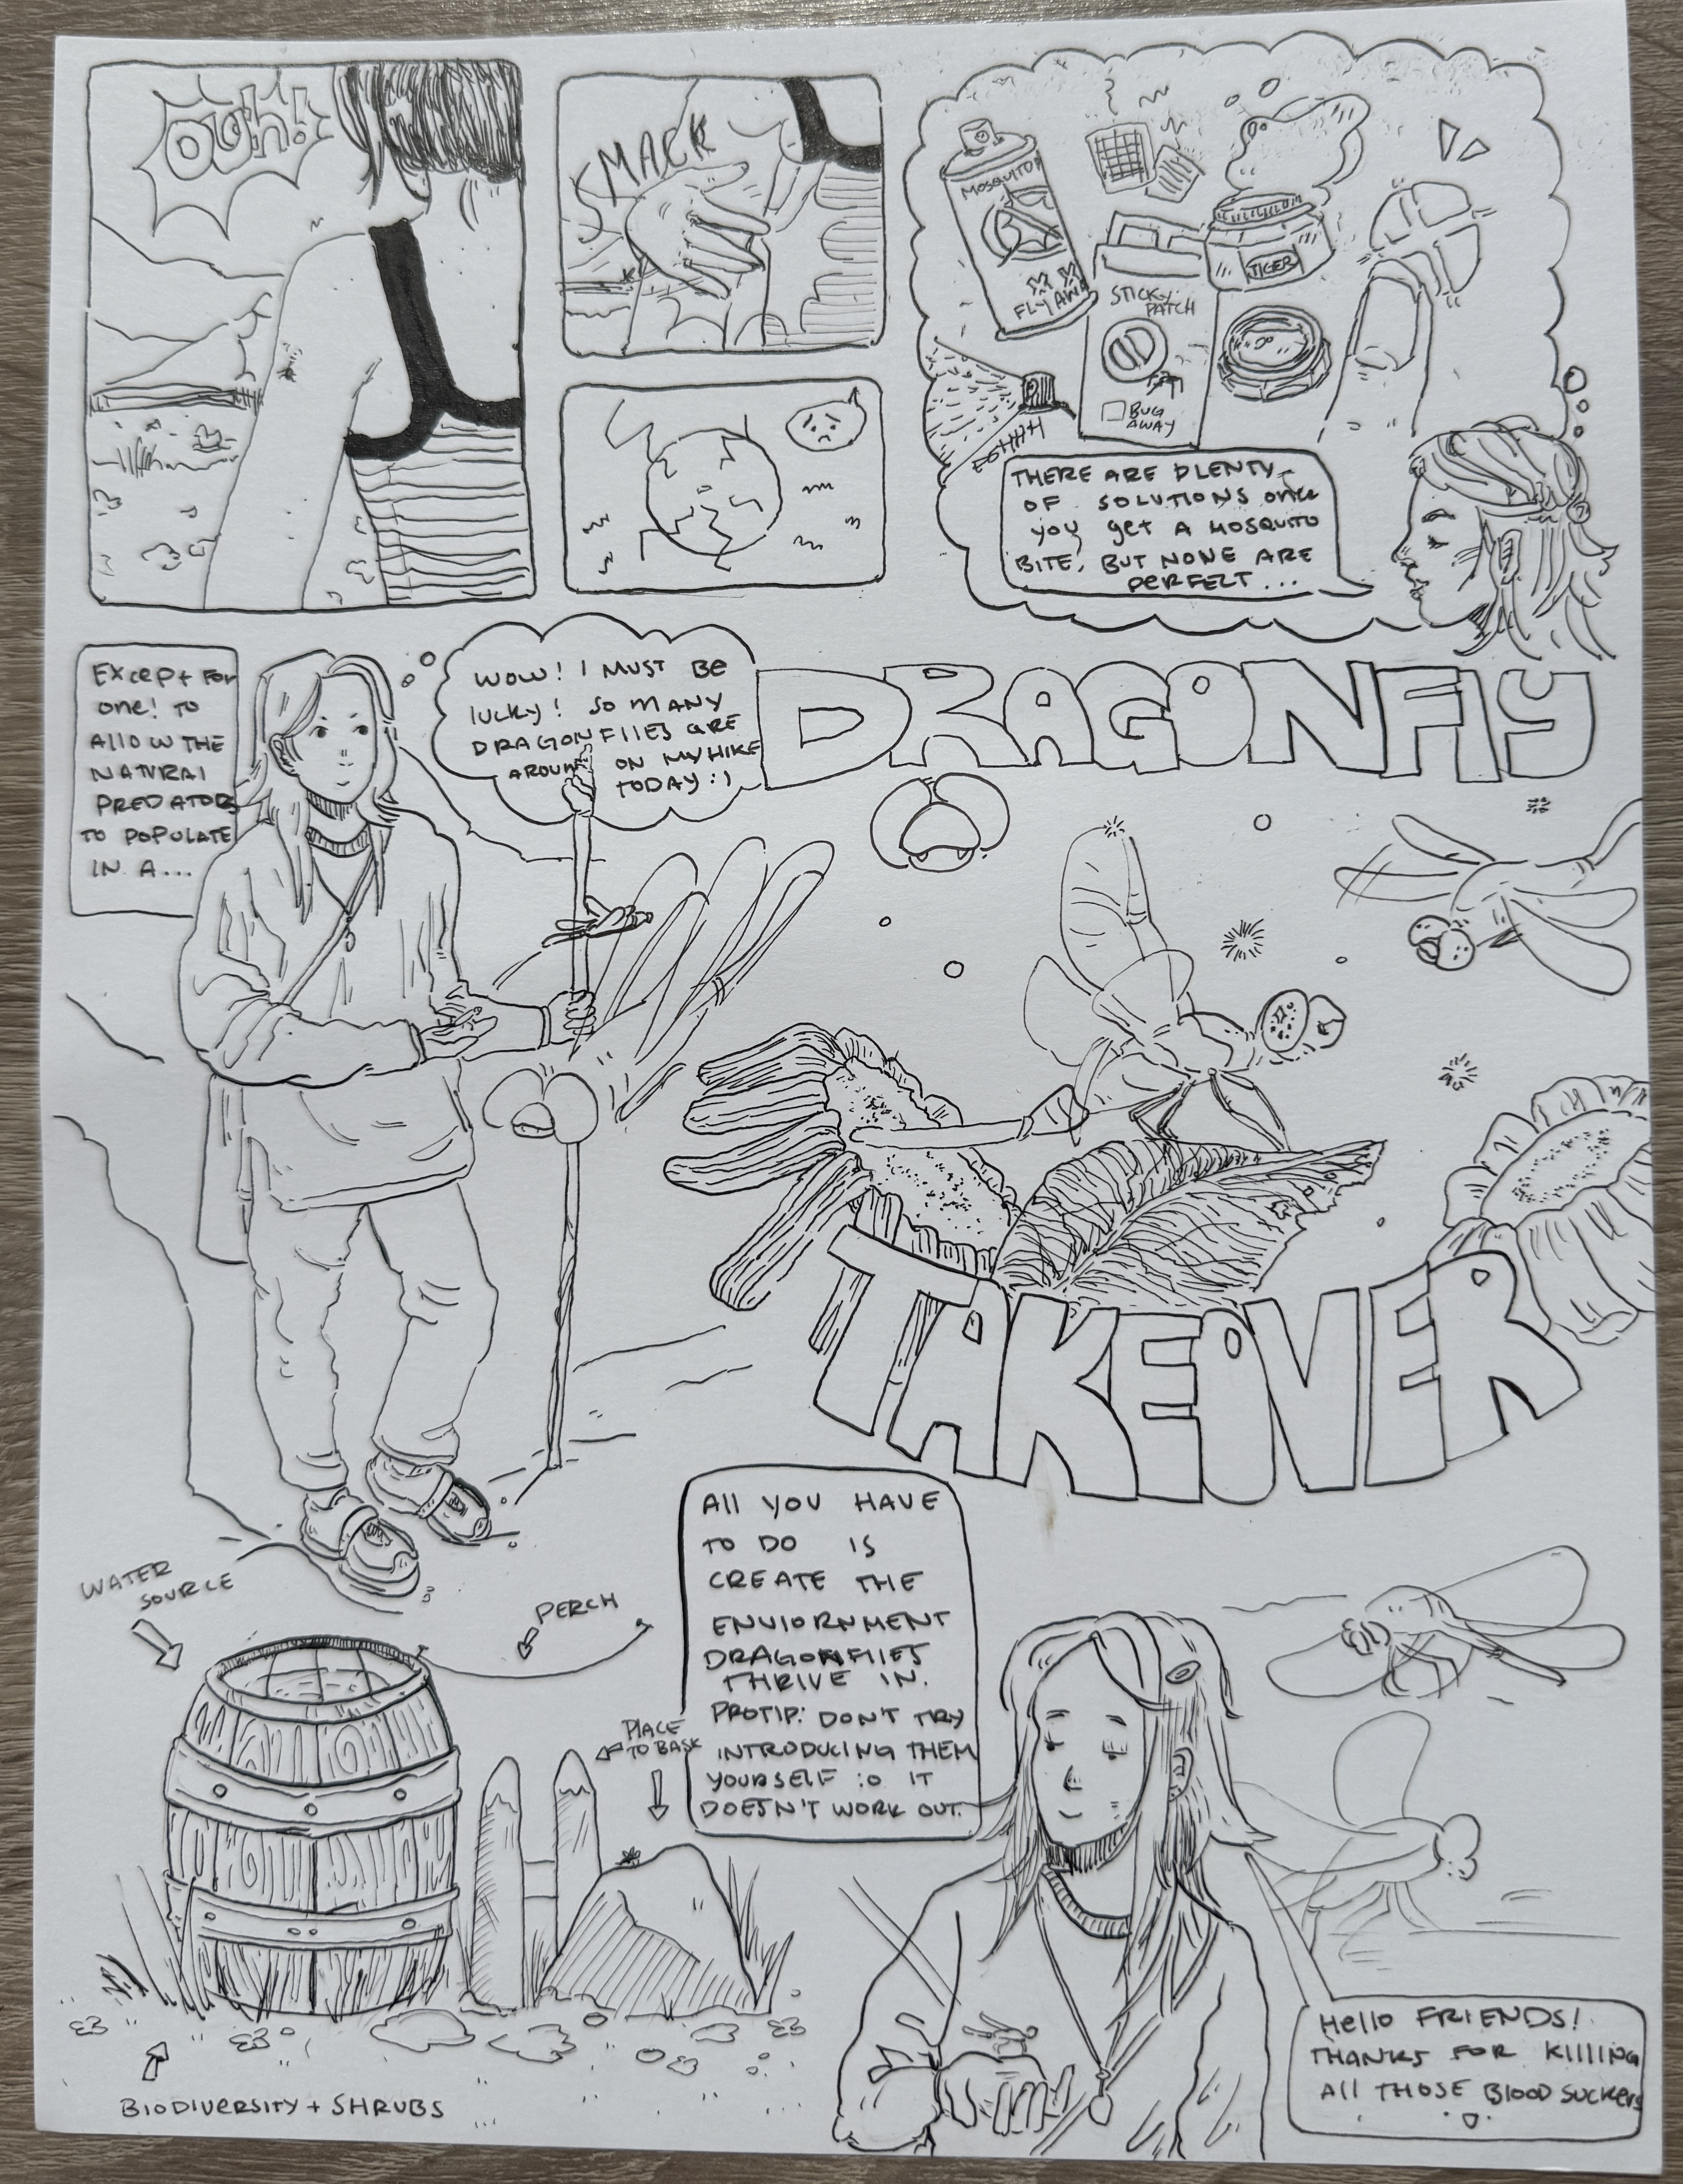 OUH!
SMACK
MOSQUITO
FLY AWA
STICKY
PATCH
BUG
AWAY
TIGER
THERE ARE PLENTY
OF SOLUTIONS once
you get A MOSQUITO
BITE, BUT NONE ARE
PERFECT...
Except for
one! TO
Allow THE
NATURAL
PREDATORS
TO POPULATE
IN A...
WOW! I MUST BE
lucky! SO MANY
DRAGONFlIES are
AROUND ON MY HIKE
TODAY :)
DRAGONFlY
TAKEOVER
WATER
SOURCE
PERCH
PlACE
TO BASK
BioDIVERSITY + SHRUBS
All YOU HAVE
TO DO IS
CREATE THE
ENVIORNMENT
DRAGONFlIES
THRIVE IN.
PROTIP: DON'T TRY
INTRODUCING THEM
YOURSELF :O IT
DOESN'T WORK OUT.
Hello FRIENDS!
THANKS FOR KIllING
All THOSE BlOOD SUCKers